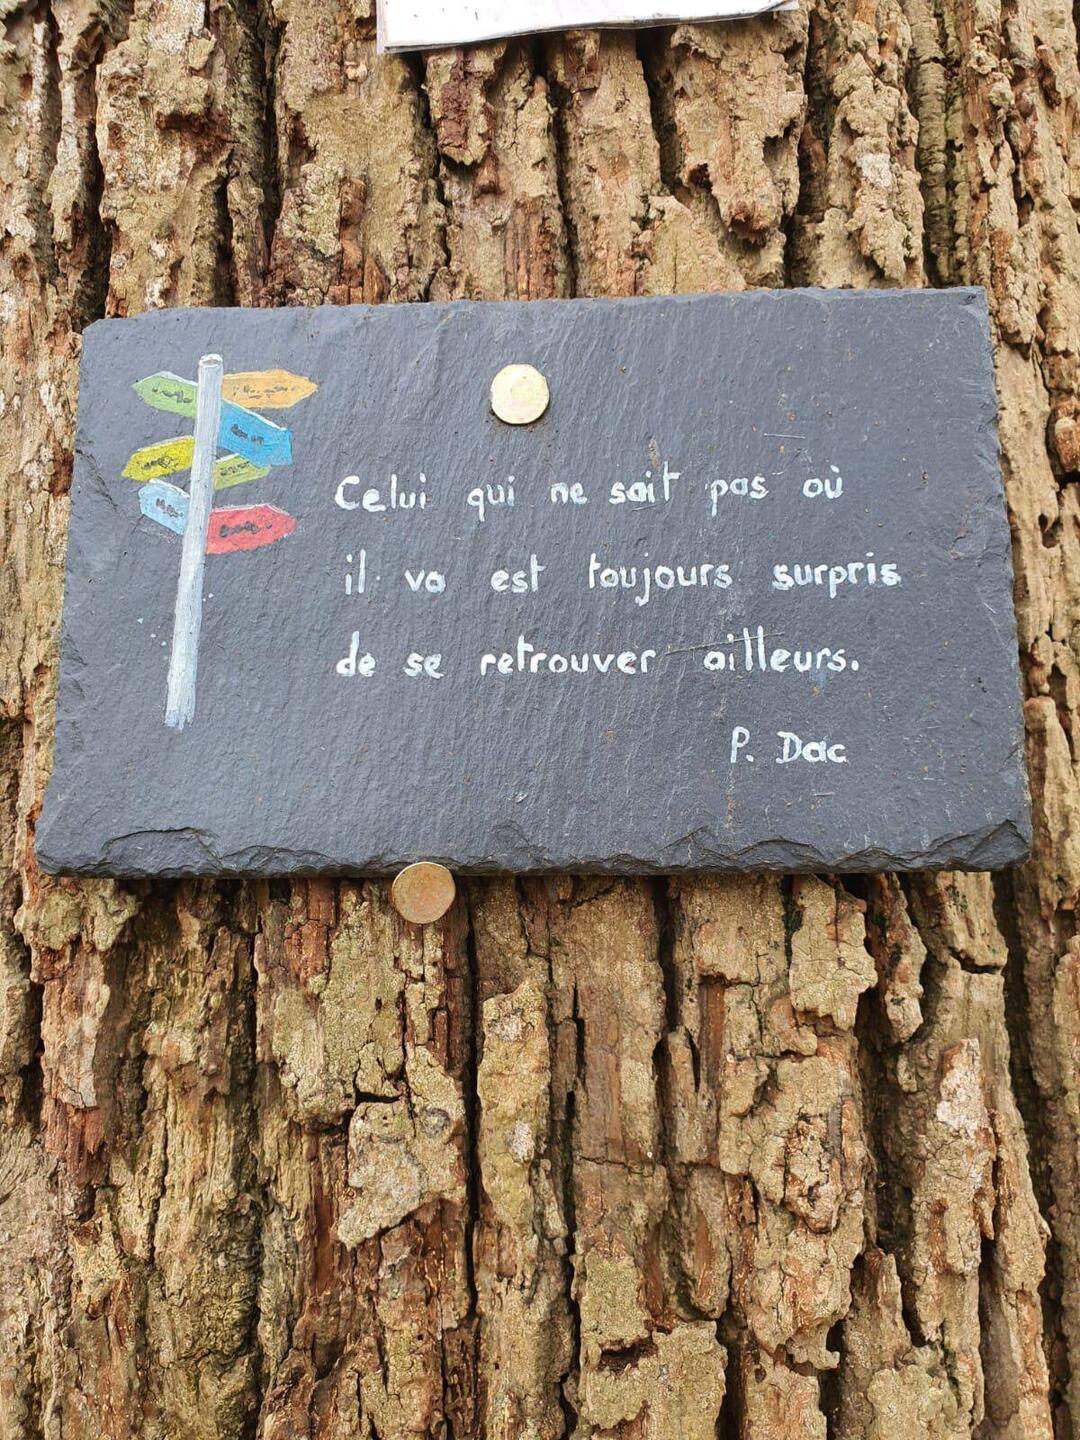 Celui qui ne sait pas où
il va est toujours surpris
de se retrouver ailleurs.
P. Dac